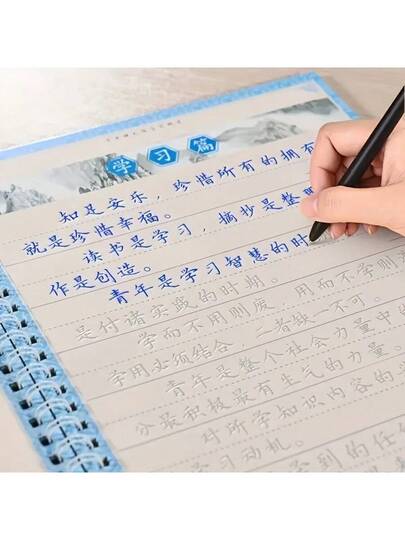 学习篇
知是安乐，珍惜所有的拥有
就是珍惜幸福。
读书是学习，摘抄是整
作是创造。
青年是学习智慧的时
是付诸实践的时期。
学而不用则废，用而不学则
学用必须结合，二者缺一不可。
青年是整个社会力量中的
分最积极最有生气的力量。
对所学知识内容的
学习动机。
学到的任